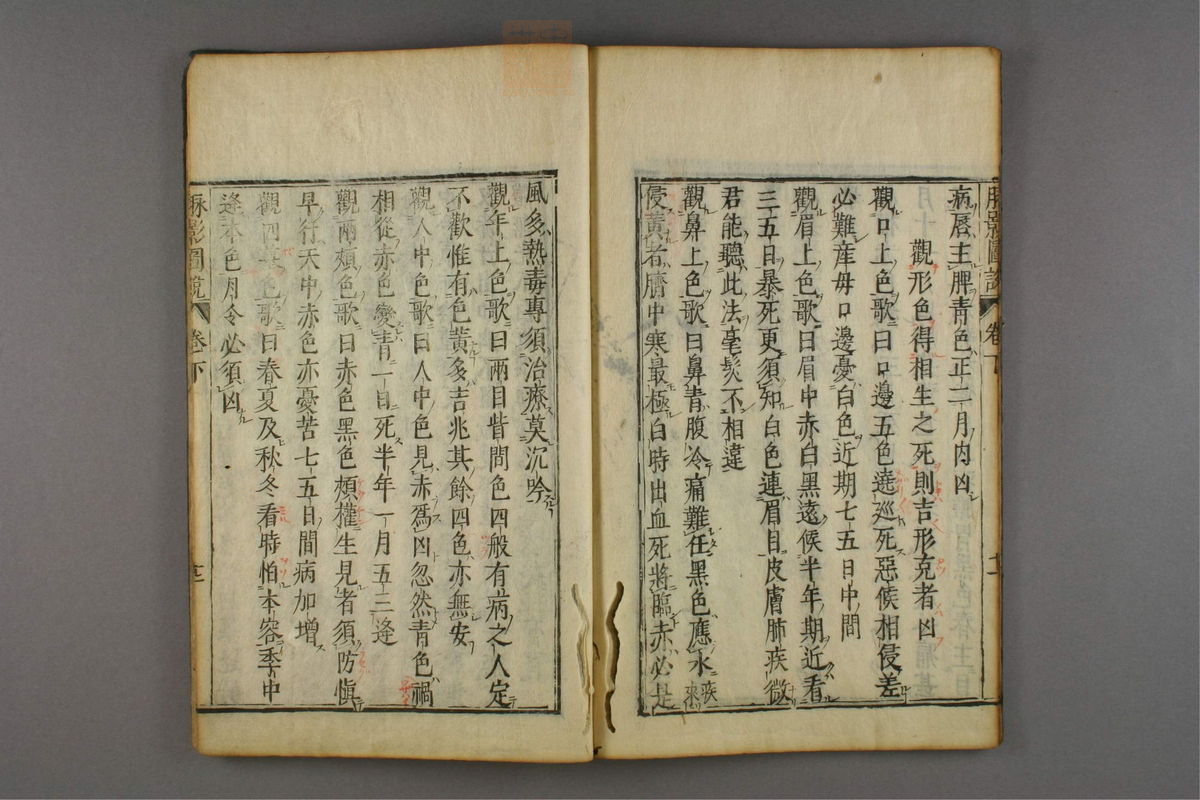 脉影圖說 卷下 十二
病唇主脾青色正二月内凶
觀形色得相生之死則吉形克者凶
觀口上色歌曰口邊五色遶廵死惡候相侵差
必難産毋口邊憂白色近期七五日中間
觀眉上色歌曰眉中赤白黑遠候半年期近看
三五日暴死更須知白色連眉目皮膚肺疾微
君能聽此法毫髮不相違
觀鼻上色歌曰鼻青腹冷痛難任黑色應水疾來
侵黄者臍中寒最極白時出血死將臨赤必是
風多熱毒專須治療莫沉吟
觀年上色歌曰兩目眥間色四般有病之人定
不歡惟有色黄多吉兆其餘四色亦無安
觀人中色歌曰人中色見赤爲凶忽然青色禍
相從赤色變青一目死半年一月五三逢
觀兩頰色歌曰赤色黑色頰權生見者須防愼
早行天中赤色亦憂苦七五日間病加增
觀四季色歌曰春夏及秋冬看時怕本容季中
逢本色月令必須凶
脉影圖說 卷下